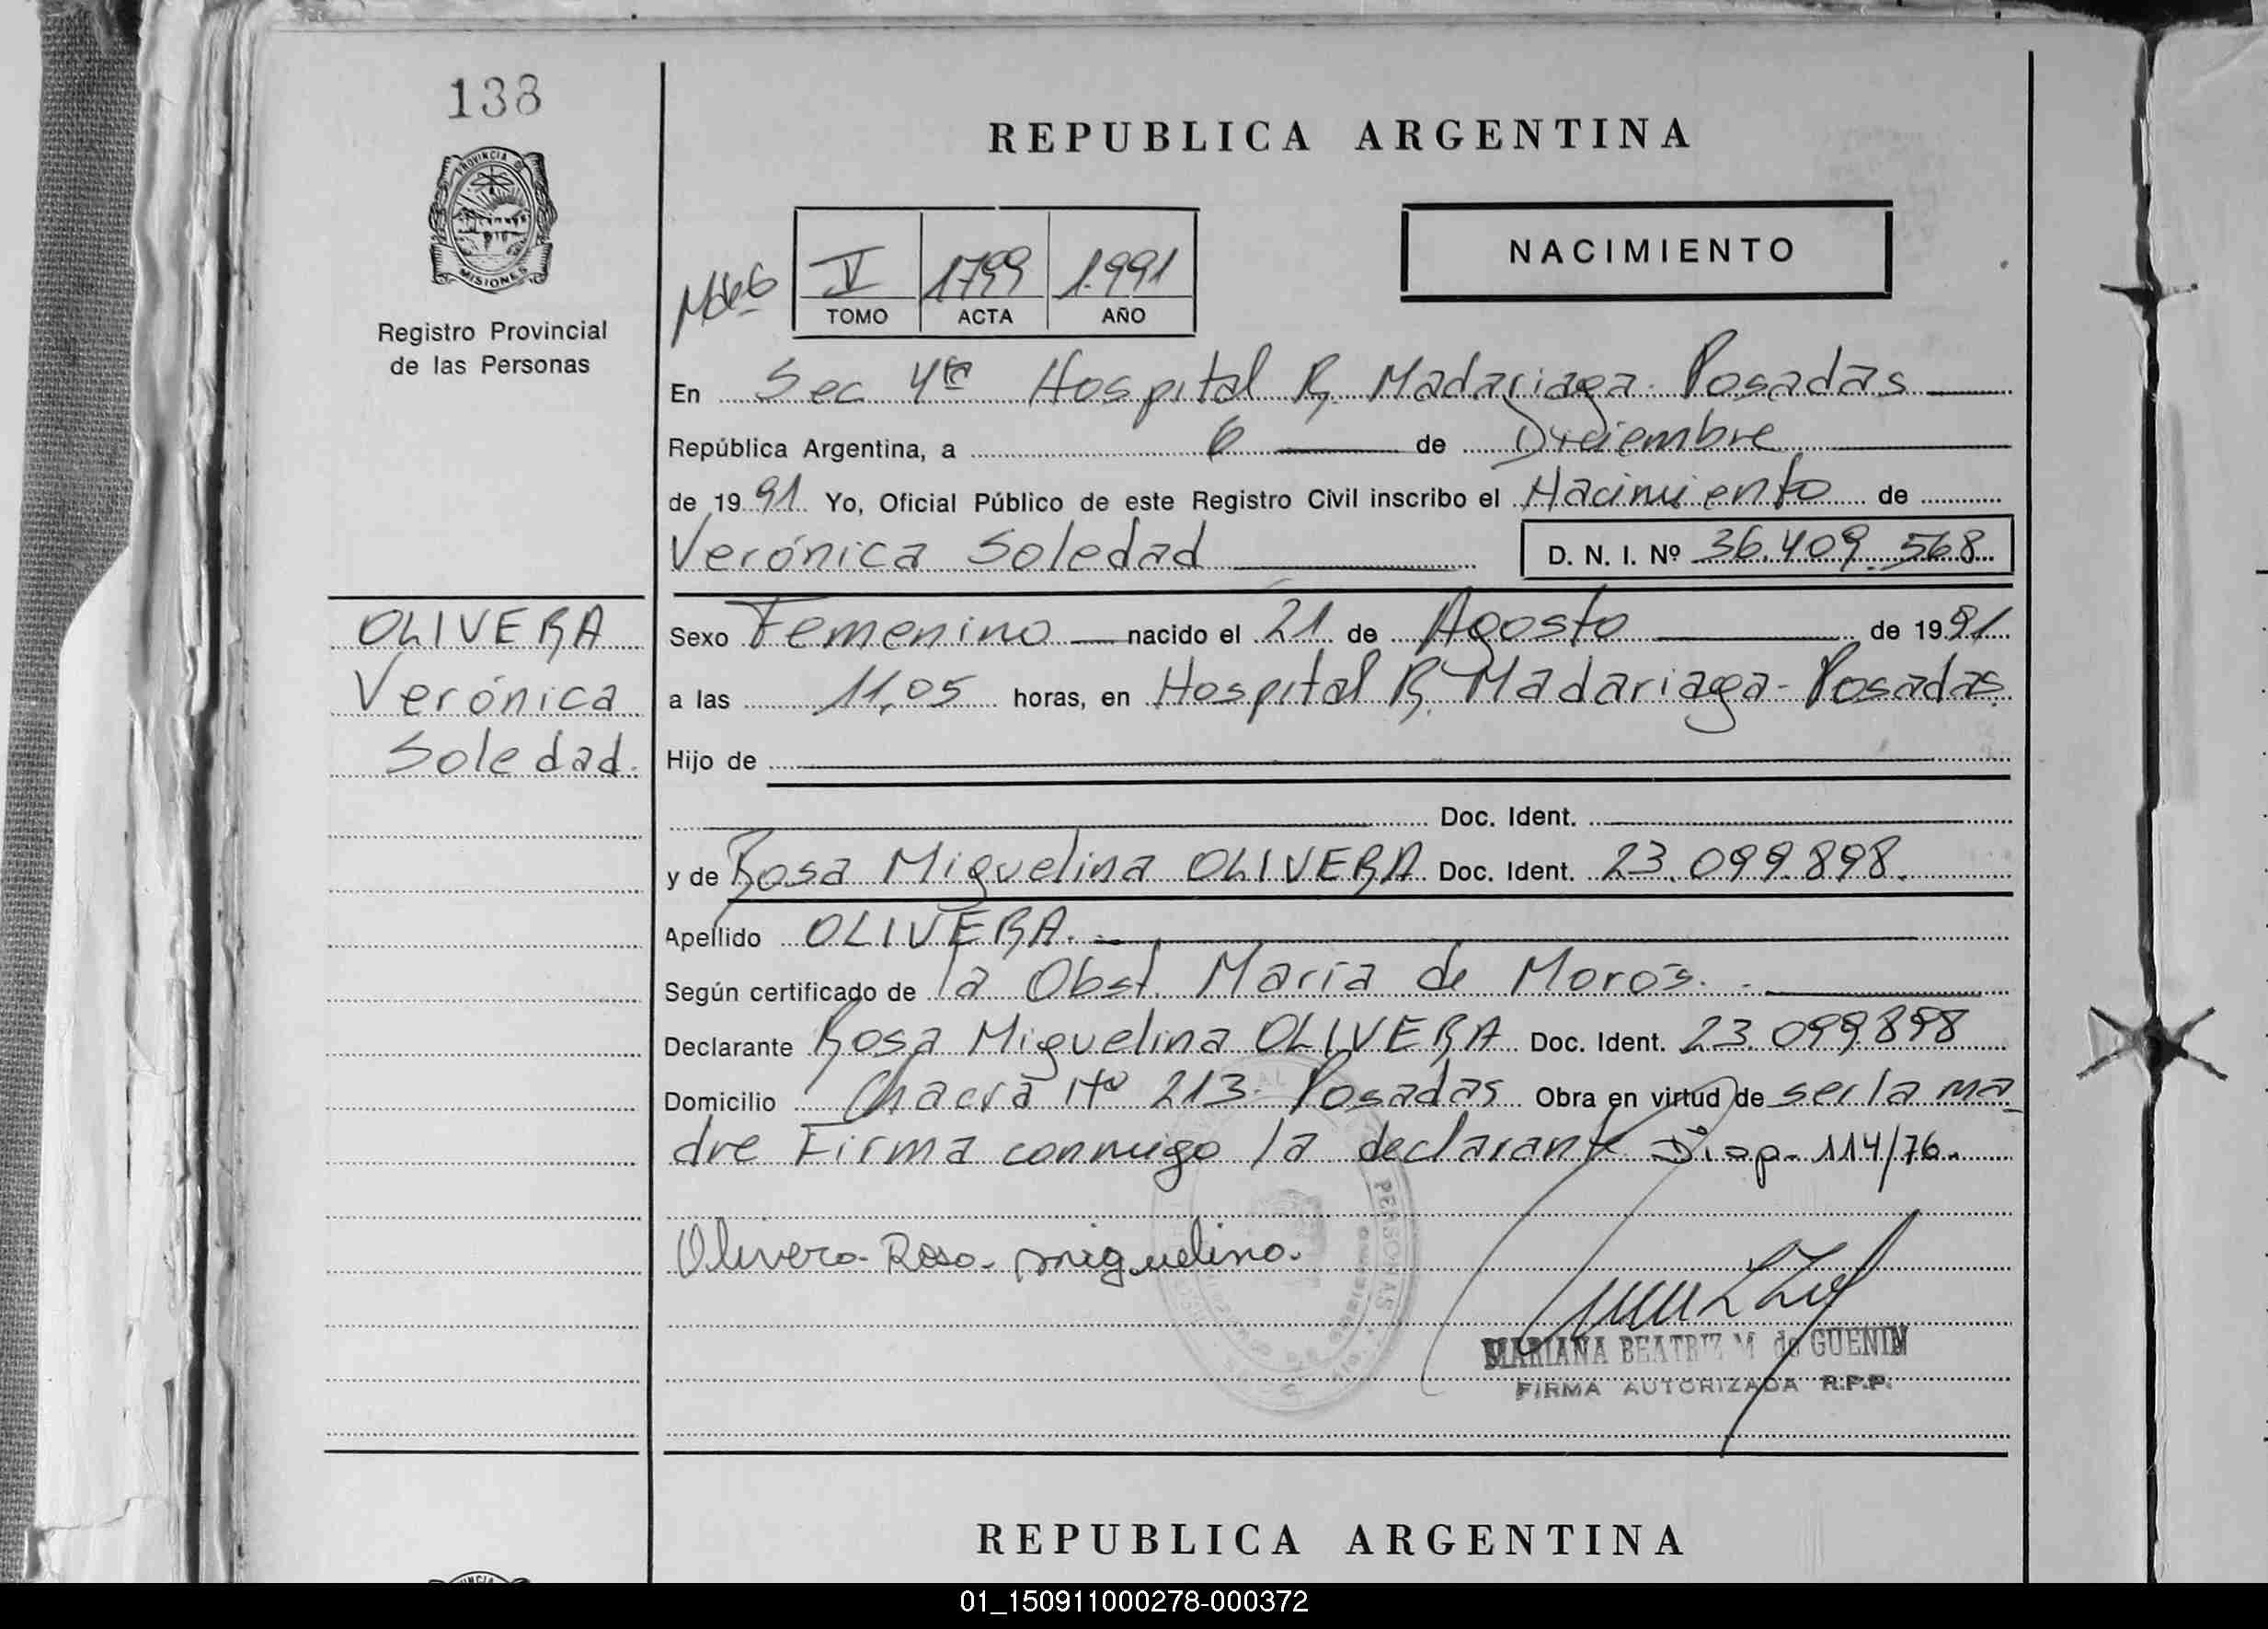 138
PROVINCIA DE
MISIONES
Registro Provincial
de las Personas
REPUBLICA ARGENTINA
NACIMIENTO
V 1799 1.991
TOMO ACTA AÑO
En Sec 4ta Hospital R. Madariaga. Posadas
República Argentina, a 6 de Diciembre
de 1991 Yo, Oficial Público de este Registro Civil inscribo el Nacimiento de
Verónica Soledad D. N. I. Nº 36.409.568
OLIVERA
Verónica
Soledad.
Sexo Femenino nacido el 21 de Agosto de 1991
a las 11,05 horas, en Hospital R. Madariaga - Posadas.
Hijo de
Doc. Ident.
y de Rosa Miguelina OLIVERA Doc. Ident. 23.099.898.
Apellido OLIVERA.
Según certificado de la Obst. María de Moros.
Declarante Rosa Miguelina OLIVERA Doc. Ident. 23.099.898
Domicilio Chacra Nº 213. Posadas Obra en virtud de ser la ma
dre Firma conmigo la declarante Disp. 114/76.
Olivera Rosa miguelina.
PERSONAS
MARIANA BEATRIZ M de GUENIN
FIRMA AUTORIZADA R.P.P.
REPUBLICA ARGENTINA
01_150911000278-000372